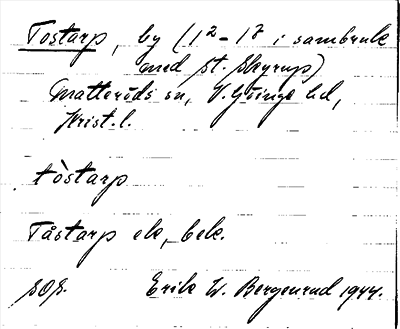 Tostarp, by (1²-1³ i sambruk
med St. Skyrup)
Matteröds sn, V. Göinge hd,
Krist. l.
tòstarp
Tåstarp ek, bek.
Erik W. Bergenrud 1944.